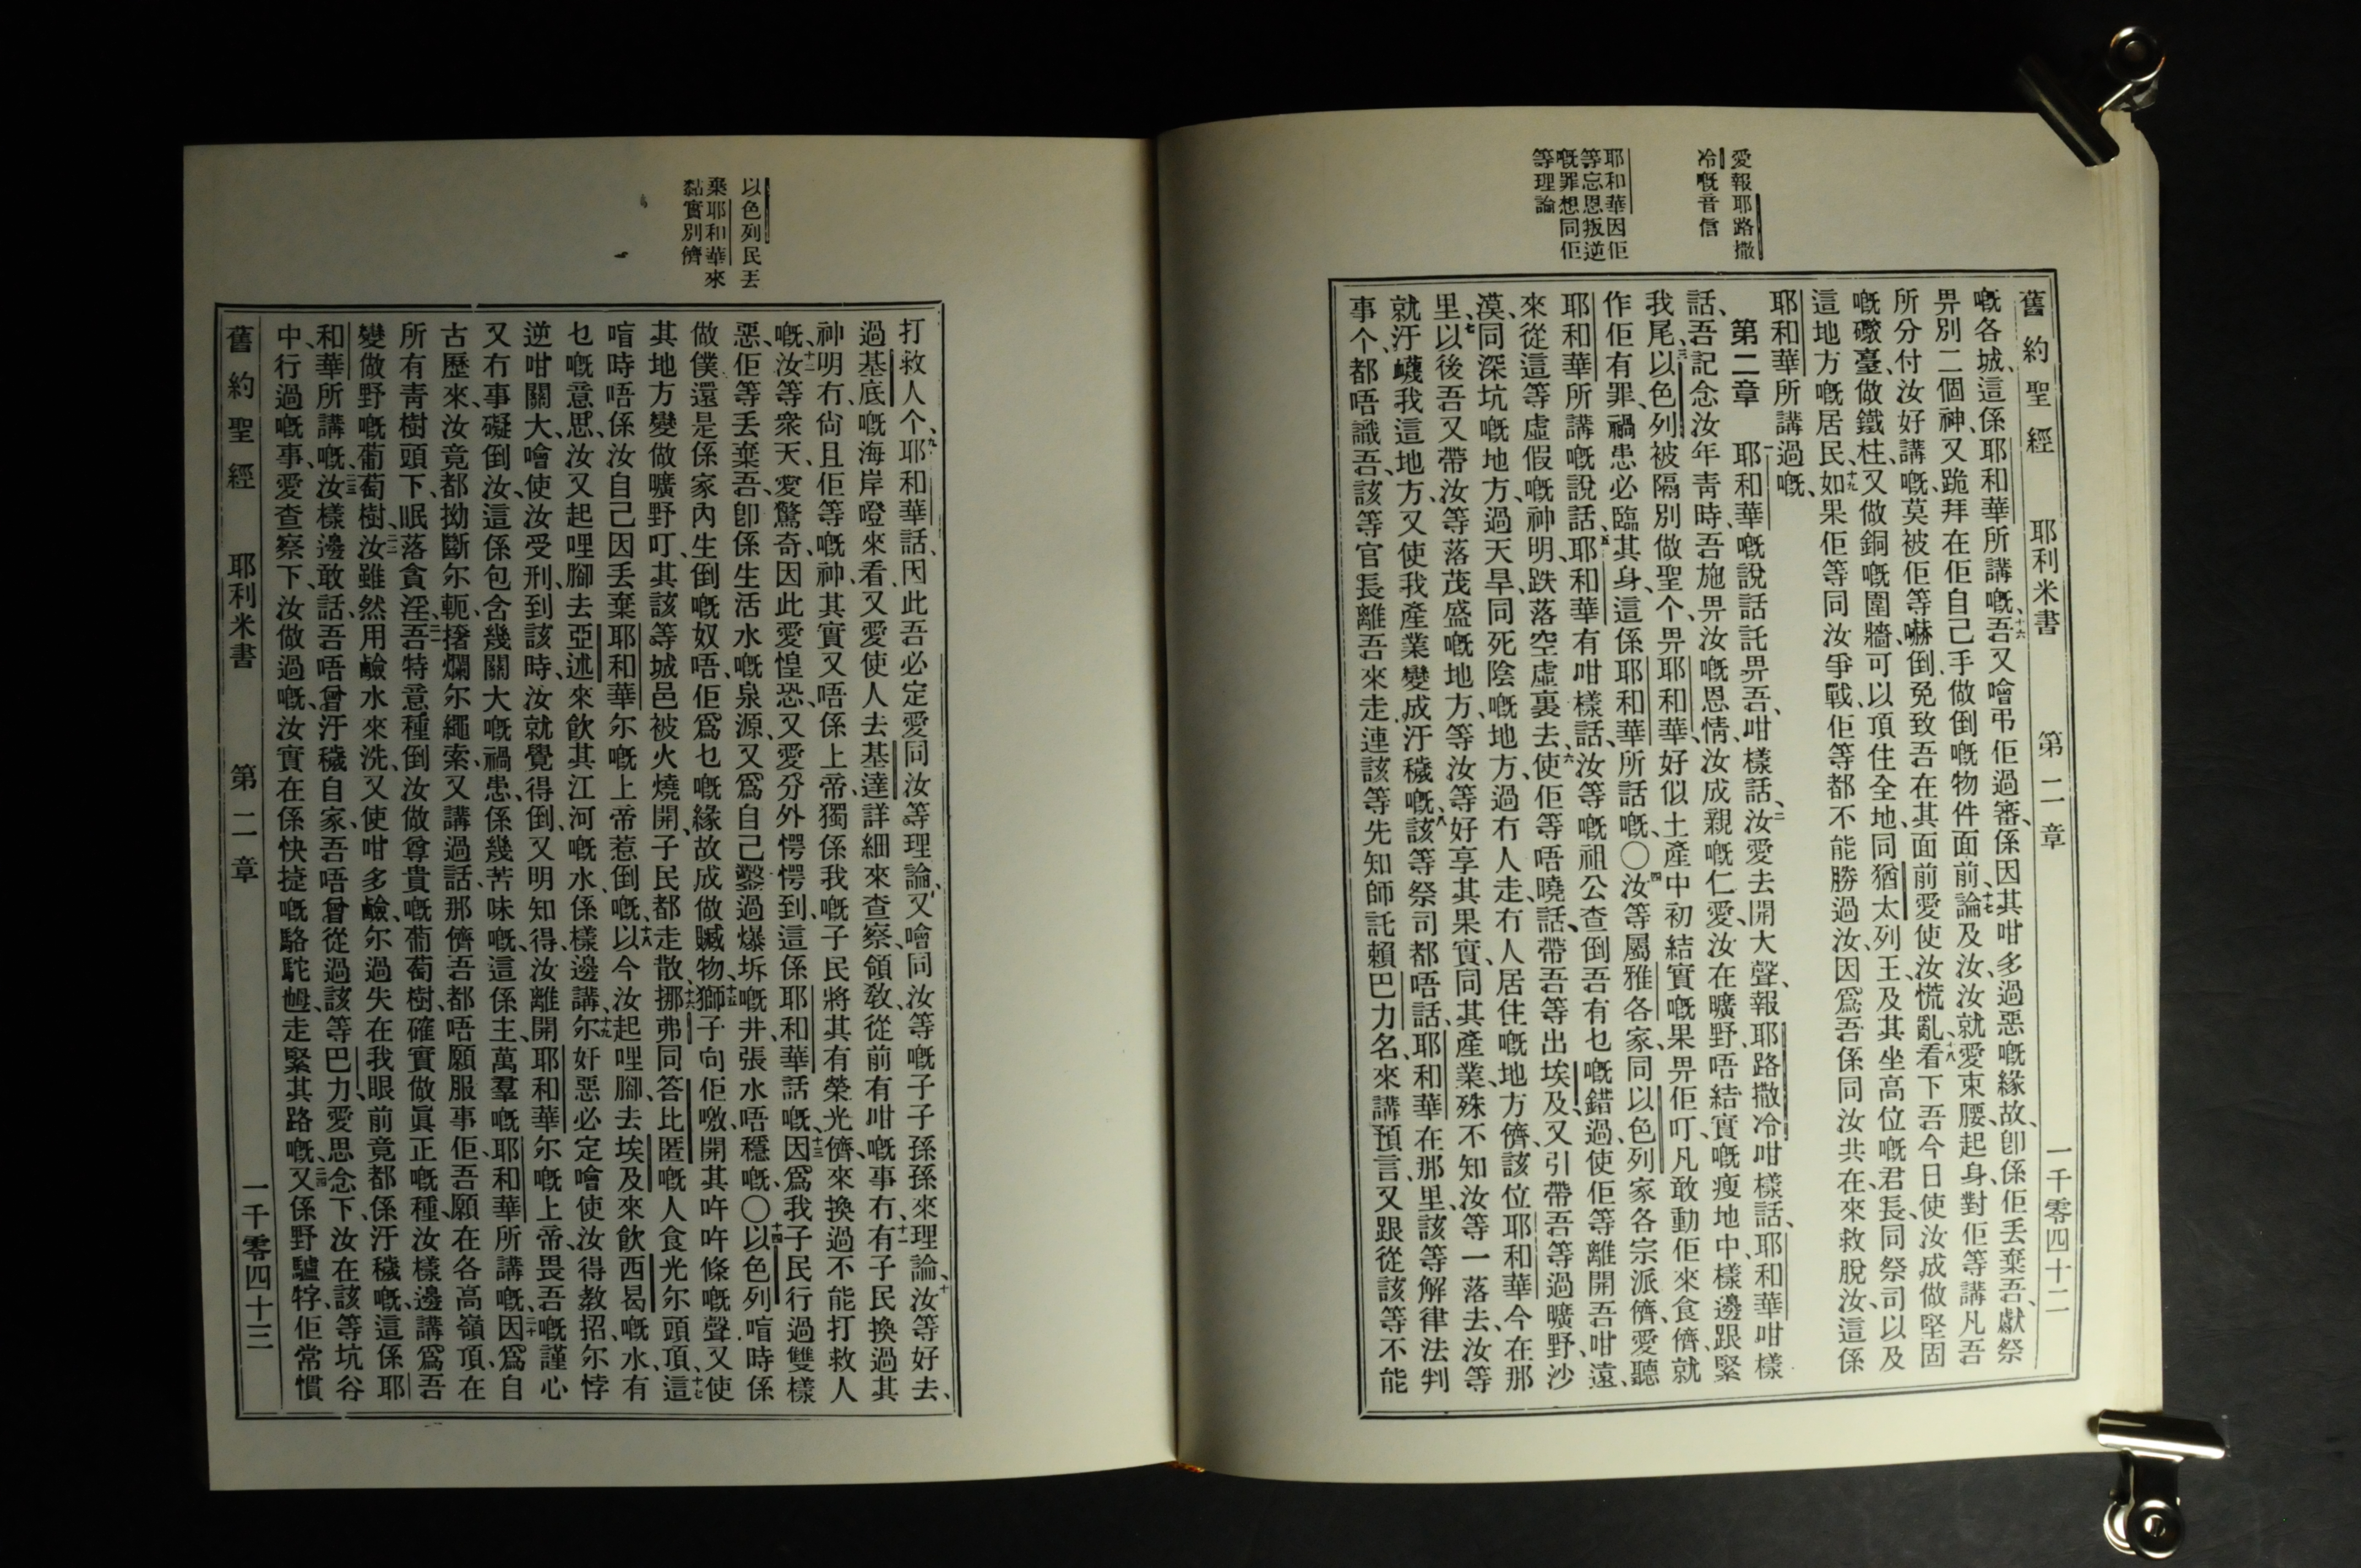 愛報耶路撒
冷嘅音信
耶和華因佢
等忘恩叛逆
嘅罪想同佢
等理論
舊約聖經 耶利米書 第二章 一千零四十二
嘅各城、這係耶和華所講嘅、十六吾又噲弔佢過審、係因其咁多過惡嘅緣故、卽係佢丢棄吾、獻祭
畀別二個神、又跪拜在佢自己手做倒嘅物件面前、十七論及汝、汝就愛束腰、起身、對佢等講凡吾
所分付汝好講嘅、莫被佢等嚇倒、免致吾在其面前愛使汝慌亂、十八看下吾今日使汝成做堅固
嘅礮臺、做鐵柱、又做銅嘅圍牆、可以頂住全地、同猶太列王、及其坐高位嘅君長、同祭司以及
這地方嘅居民、十九如果佢等同汝爭戰、佢等都不能勝過汝、因爲吾係同汝共在、來救脫汝、這係
耶和華所講過嘅、
第二章 一耶和華嘅說話託畀吾、咁樣話、二汝愛去開大聲、報耶路撒冷咁樣話、耶和華咁樣
話、吾記念汝年靑時、吾施畀汝嘅恩情、汝成親嘅仁愛、汝在曠野、唔結實嘅瘦地中、樣邊跟緊
我尾、三以色列被隔別做聖个、畀耶和華、好似土產中初結實嘅果畀佢叮、凡敢動佢來食儕、就
作佢有罪、禍患必臨其身、這係耶和華所話嘅、〇四汝等屬雅各家、同以色列家各宗派儕、愛聽
耶和華所講嘅說話、五耶和華有咁樣話、汝等嘅祖公查倒吾有乜嘅錯過、使佢等離開吾咁遠、
來從這等虛假嘅神明、跌落空虛裏去、六使佢等唔曉話、帶吾等出埃及、又引帶吾等過曠野、沙
漠、同深坑嘅地方、過天旱、同死陰嘅地方、過冇人走、冇人居住嘅地方儕、該位耶和華今在那
里、七以後吾又帶汝等落茂盛嘅地方、等汝等好享其果實、同其產業、殊不知汝等一落去、汝等
就汙衊我這地方、又使我產業變成汙穢嘅、八該等祭司都唔話、耶和華在那里、該等解律法判
事个、都唔識吾、該等官長離吾來走、連該等先知師託賴巴力名、來講預言、又跟從該等不能
以色列民丢
棄耶和華來
黏實別儕
打救人个、九耶和華話、因此吾必定愛同汝等理論、又噲同汝等嘅子子孫孫來理論、十汝等好去、
過基底嘅海岸噔來看、又愛使人去基達詳細來查察、領敎、從前有咁嘅事冇、十一有子民換過其
神明冇、尙且佢等嘅神、其實又唔係上帝、獨係我嘅子民將其有榮光儕、來換過不能打救人
嘅、十二汝等衆天、愛驚奇、因此愛惶恐、又愛分外愕愕到、這係耶和華話嘅、十三因爲我子民行過雙樣
惡、佢等丢棄吾、卽係生活水嘅泉源、又爲自己鑿過爆坼嘅井、張水唔穩嘅、〇十四以色列喑時係
做僕、還是係家內生倒嘅奴唔、佢爲乜嘅緣故成做贓物、十五獅子向佢噭、開其吽吽條嘅聲、又使
其地方變做曠野叮、其該等城邑被火燒開、子民都走散、十六挪弗同答比匿嘅人食光尔頭頂、十七這
喑時唔係汝自己因丢棄耶和華尔嘅上帝惹倒嘅、十八以今汝起哩腳、去埃及來飮西曷嘅水、有
乜嘅意思、汝又起哩腳去亞述來飮其江河嘅水、係樣邊講、十九尔奸惡必定噲使汝得教招、尔悖
逆咁關大、噲使汝受刑、到該時、汝就覺得倒、又明知得、汝離開耶和華尔嘅上帝、畏吾嘅謹心
又冇事礙倒汝、這係包含幾關大嘅禍患、係幾苦味嘅、這係主、萬羣嘅耶和華所講嘅、二十因爲自
古歷來、汝竟都拗斷尔軛、撦爛尔繩索、又講過話、那儕吾都唔願服事佢、吾願在各高嶺頂、在
所有靑樹頭下、眠落貪淫、二一吾特意種倒汝做尊貴嘅葡萄樹、確實做眞正嘅種、汝樣邊講爲吾
變做野嘅葡萄樹、二二汝雖然用鹼水來洗、又使咁多鹼、尔過失在我眼前竟都係汙穢嘅、這係耶
和華所講嘅、二三汝樣邊敢話、吾唔曾汙穢自家、吾唔曾從過該等巴力、愛思念下、汝在該等坑谷
中行過嘅事、愛查察下、汝做過嘅、汝實在係快捷嘅駱駝𡜵、走緊其路嘅、二四又係野驢牸、佢常慣
舊約聖經 耶利米書 第二章 一千零四十三